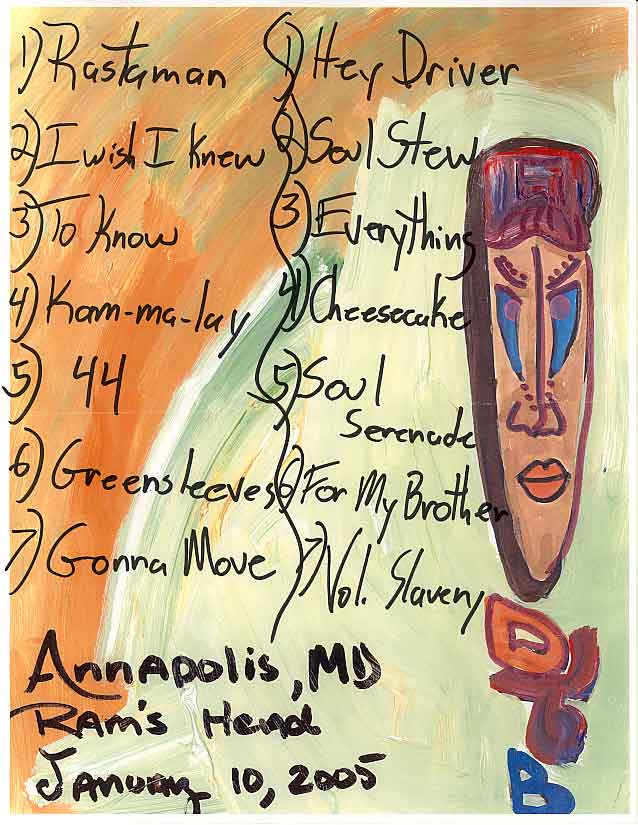 1) Rastaman
2) I wish I Knew
3) To Know
4) Kam-ma-lay
5) 44
6) Greensleeves
7) Gonna Move
1) Hey Driver
2) Soul Stew
3) Everything
4) Cheesecake
5) Soul
Serenade
6) For My Brother
7) Vol. Slavery
Annapolis, MD
Ram's Head
January 10, 2005
D
B